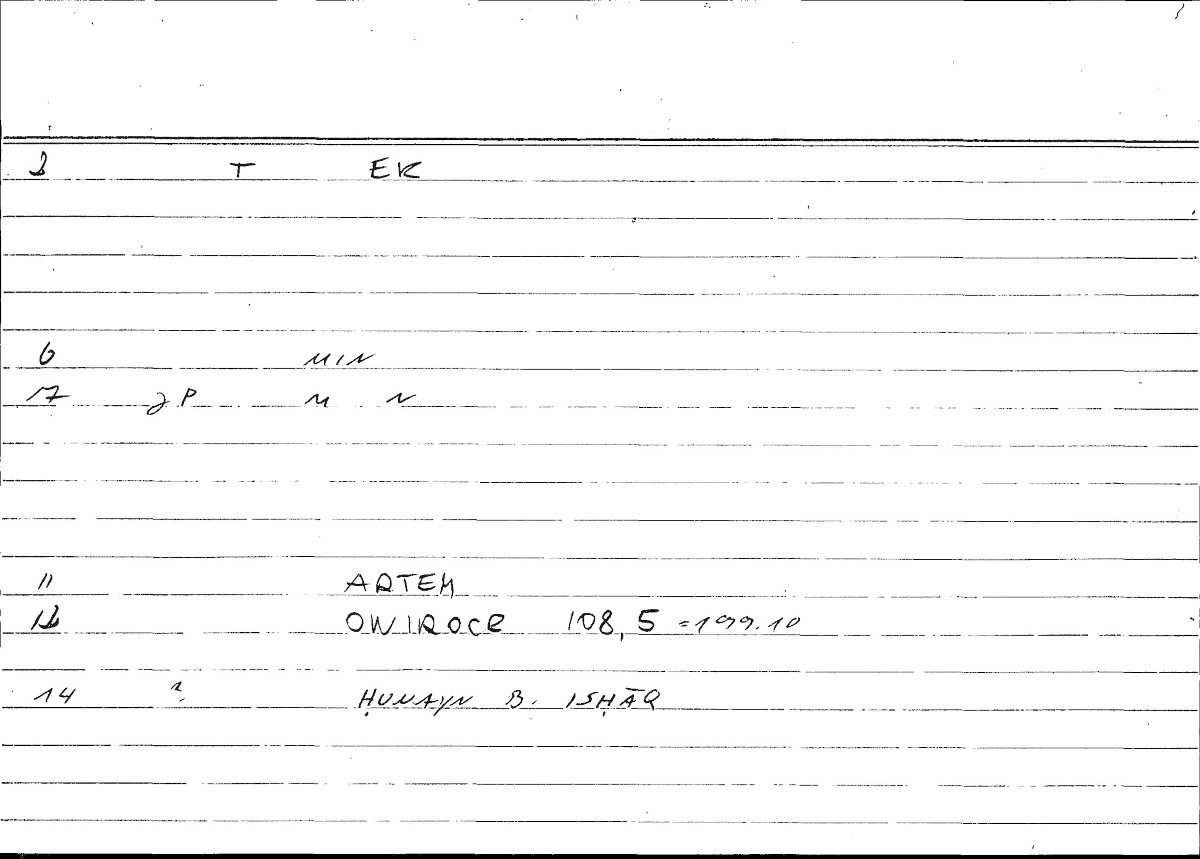 2 T EK
6 MIN
17 P M N
11 ARTEM
12 ONIROCR 108,5 =199.10
14 ? ḤUNAYN B. ISḤĀQ